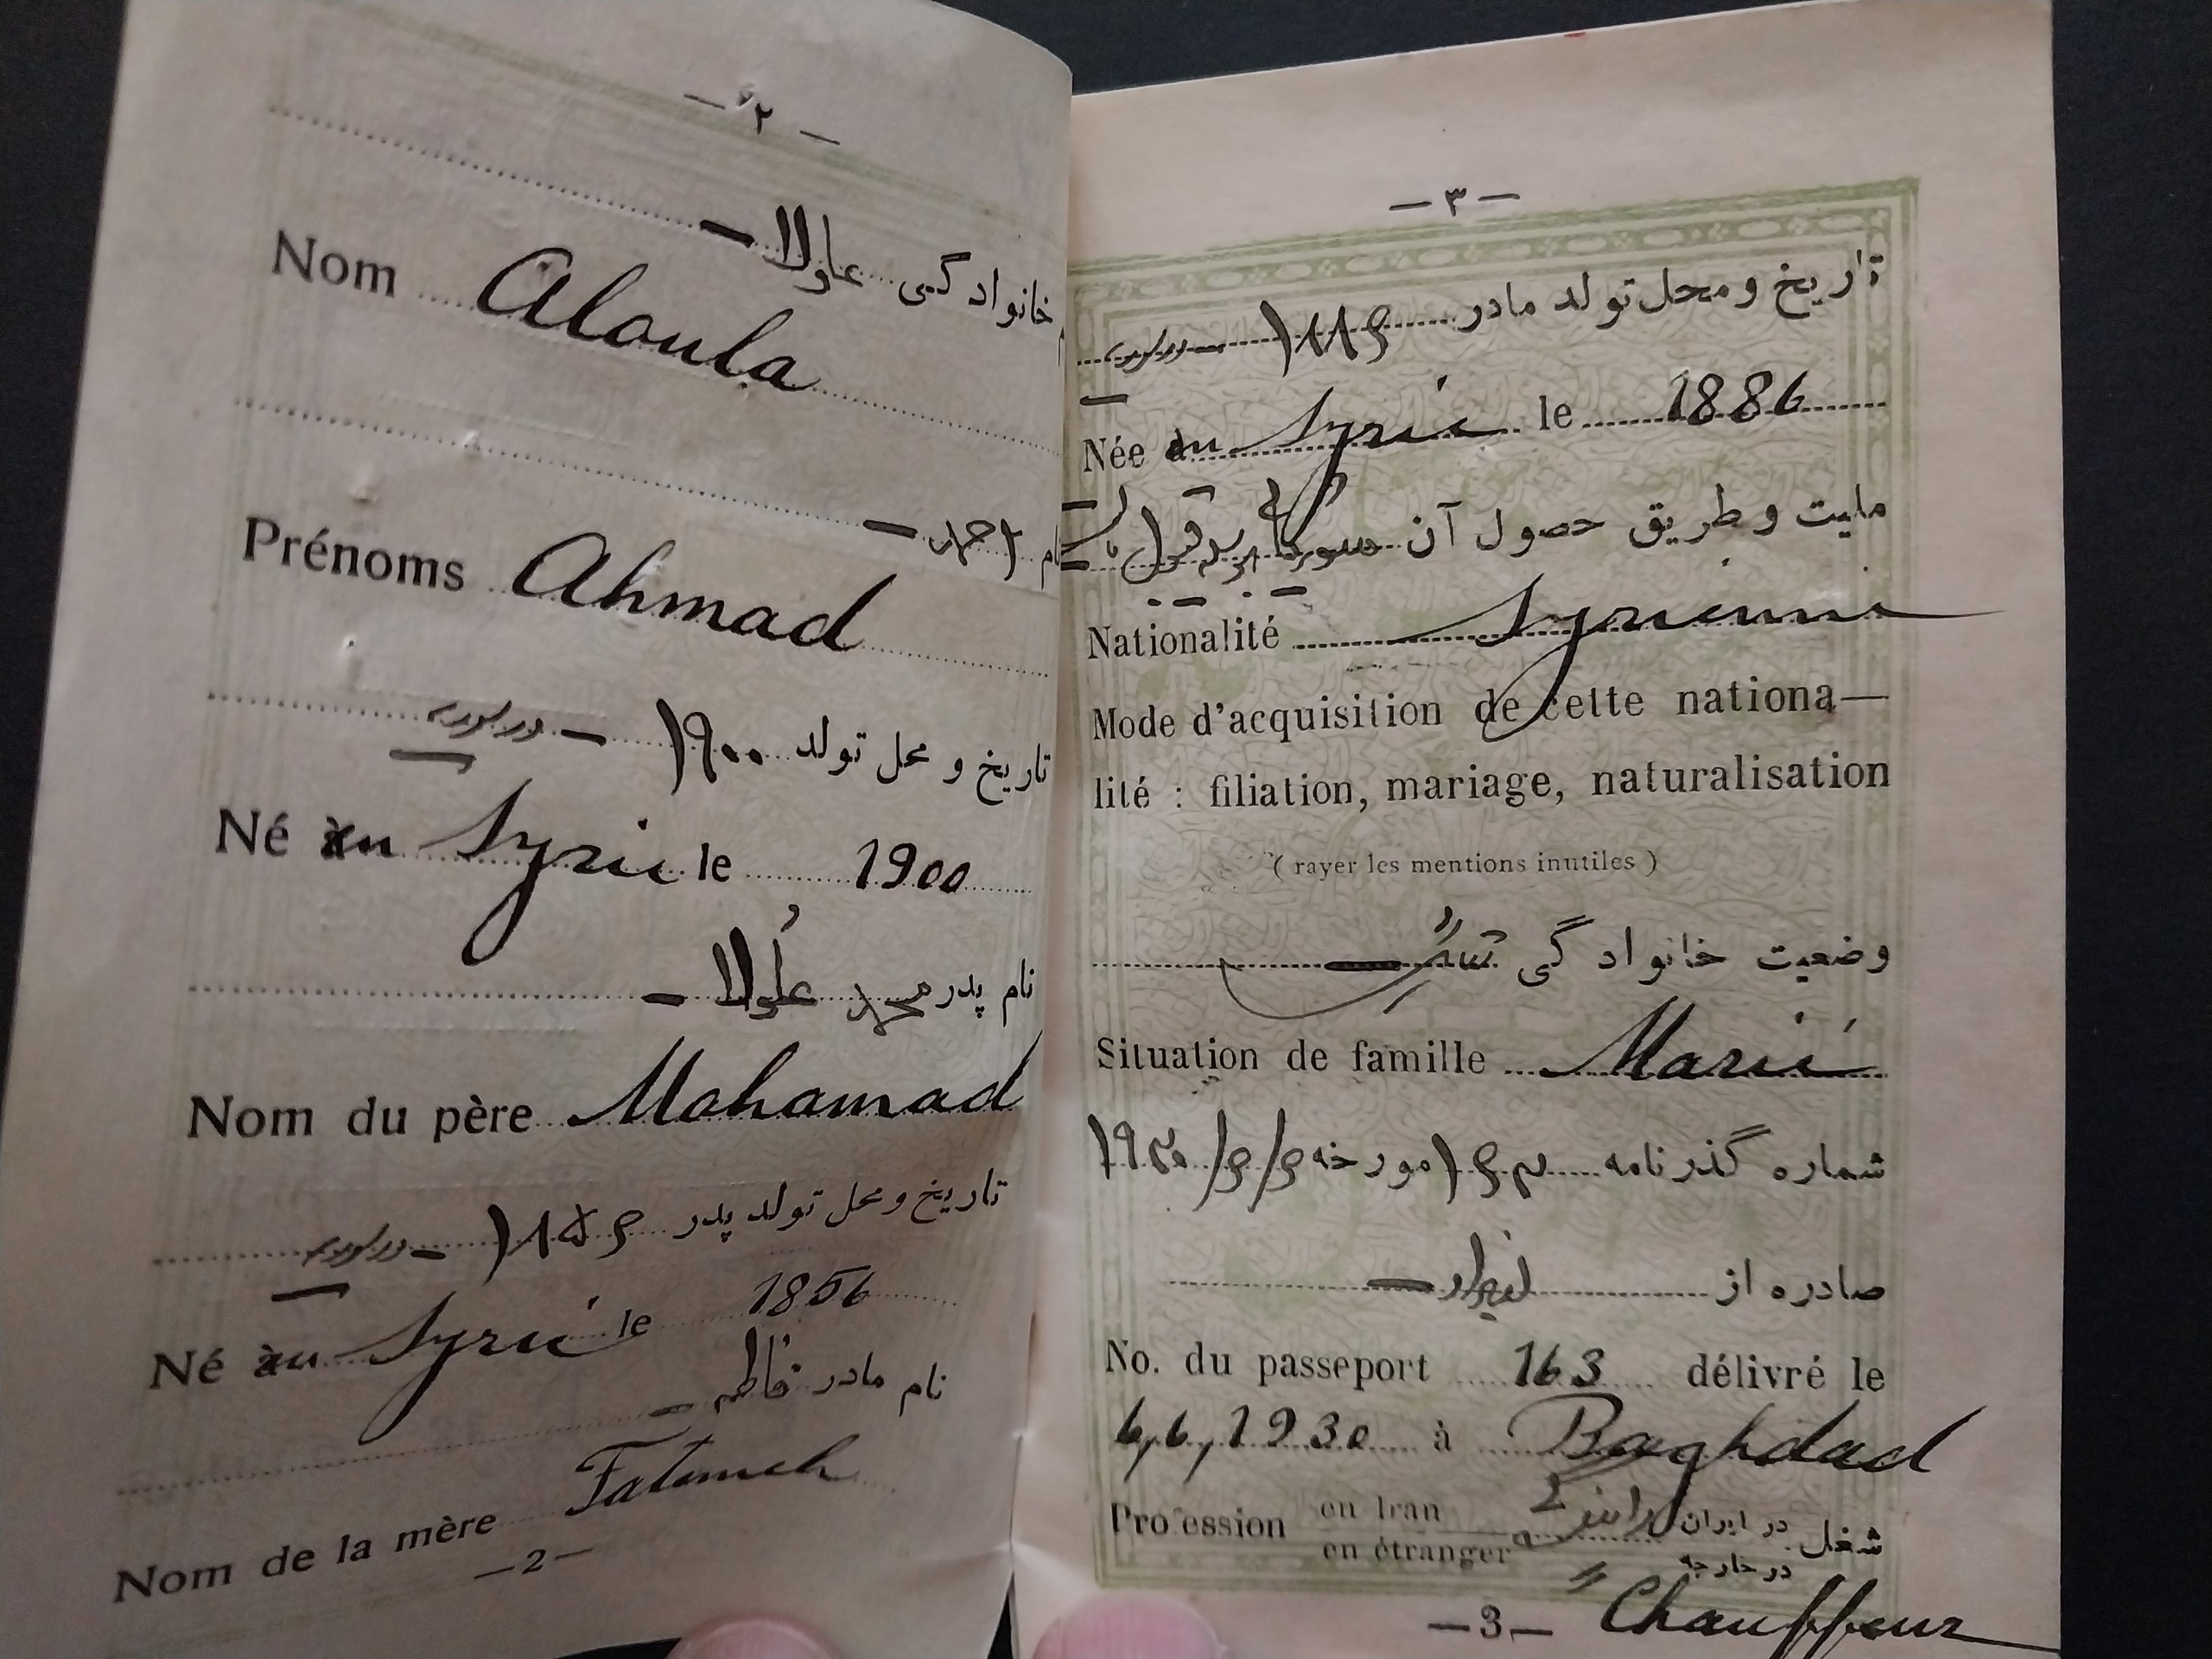 — ٢ —
خانوادگی علولا —
Nom Aloula
نام احمد —
Prénoms Ahmad
تاریخ و محل تولد ١٩٠٠ — در سوریه
Né au Syrie le 1900
نام پدر محمد علولا —
Nom du père Mohamad
تاریخ و محل تولد پدر ١٨٥۶ — در سوریه
Né au Syrie le 1856
نام مادر فاطمه —
Nom de la mère Fatemeh
— 2 —
— ٣ —
تاریخ و محل تولد مادر ١٨٨۶ — در سوریه
Née au Syrie le 1886
ملیت و طریق حصول آن
Nationalité Syrienne
Mode d'acquisition de cette nationa—
lité : filiation, mariage, naturalisation
( rayer les mentions inutiles )
وضعیت خانوادگی
Situation de famille Marié
شماره گذرنامه ١۶٣ مورخه ۶/۶/١٩٣٠
صادره از بغداد —
No. du passeport 163 délivré le
6,6,1930 à Baghdad
Profession en Iran شغل در ایران راننده
en étranger در خارجه
" Chauffeur
— 3 —